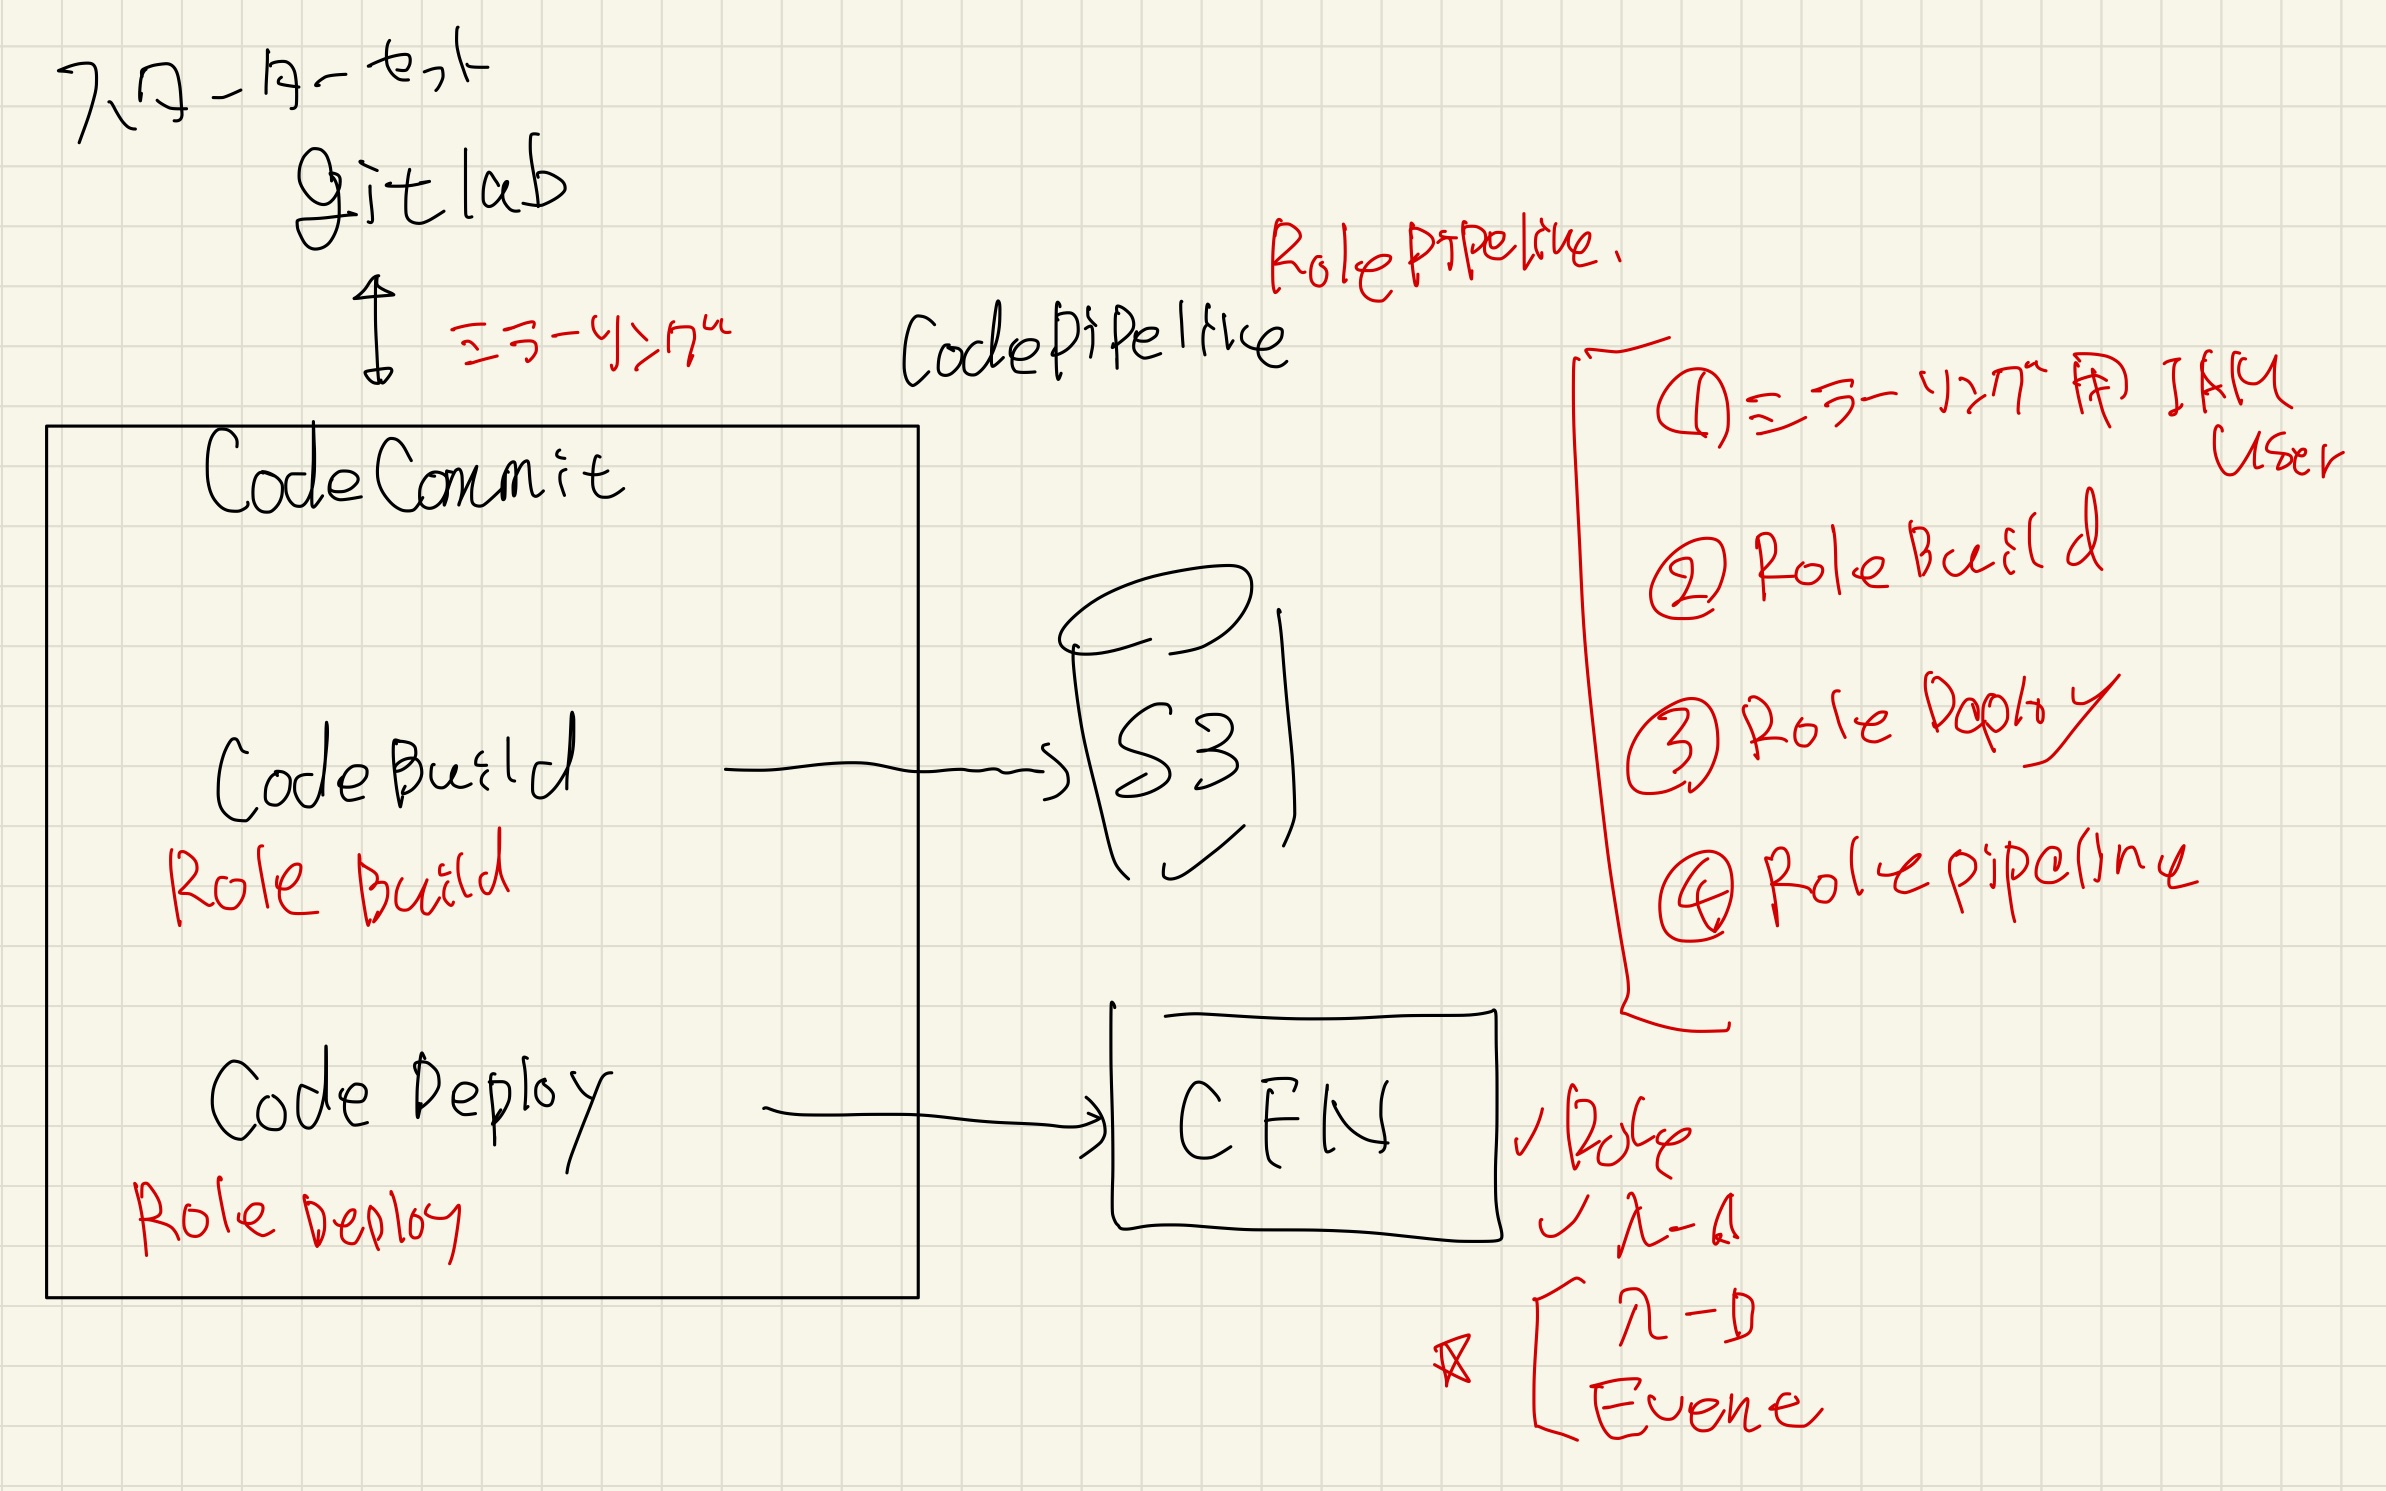 gitlab
ミラーリング
Role Pipeline.
CodePipeline
CodeCommit
CodeBuild
Role Build
Code Deploy
Role Deploy
S3
CFN
① ミラーリング用 IAM
User
② Role Build
③ Role Deploy
④ Role pipeline
✓ Role
✓ λ-A
λ-D
Event